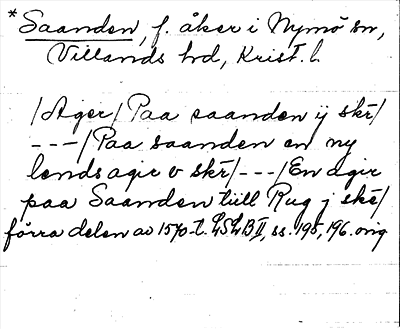 *Saanden, f. åker i Nymö sn,
Villands hd, Krist. l.
/Ager/Paa saanden ij skr/
---/Paa saanden en ny
lends ager v skr/---/En agir
paa Saanden tiill Rug j skr/
förra delen av 1570-t. LSLB II, ss. 195, 196. orig